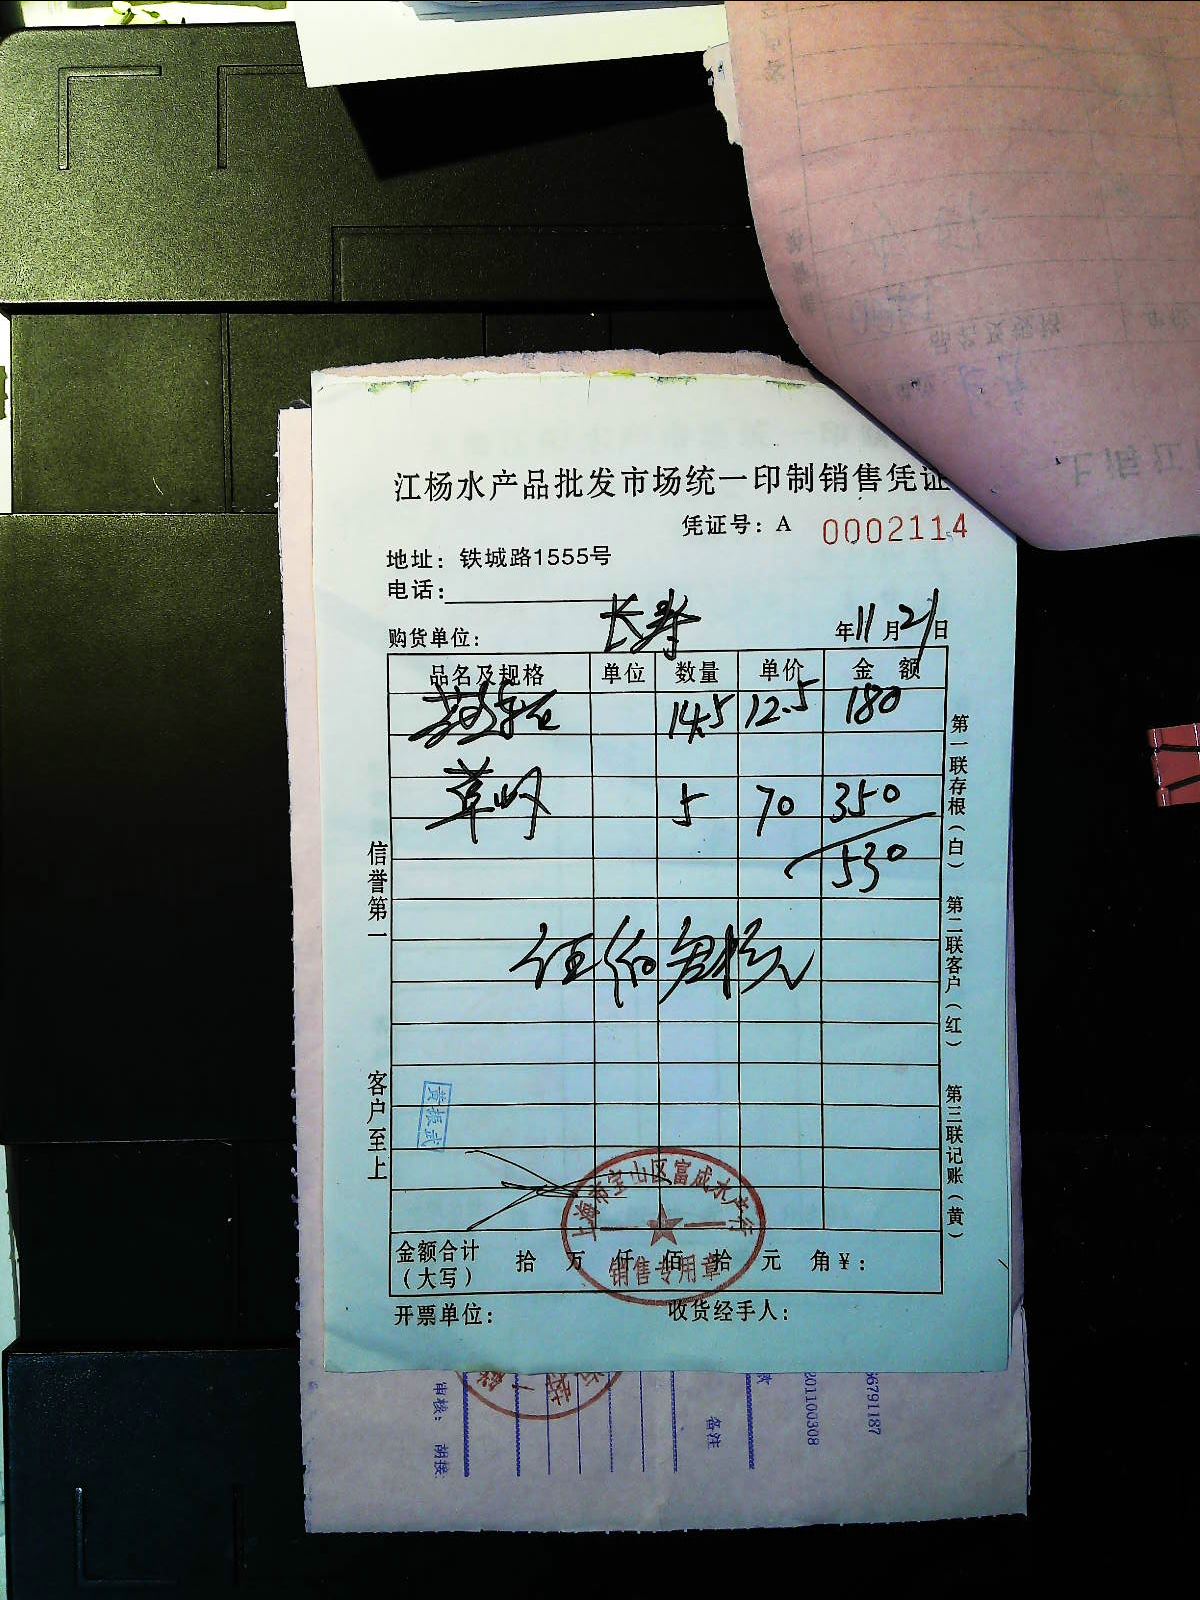 江杨水产品批发市场统一印制销售凭证
凭证号：A 0002114
地址：铁城路1555号
电话：
购货单位： 长寿 年11月21日
品名及规格 单位 数量 单价 金额
14.5 12.5 180
草 5 70 350
530
伍佰叁拾元
信誉第一 客户至上
第一联存根（白） 第二联客户（红） 第三联记账（黄）
黄振武
上海市宝山区富成水产行
销售专用章
金额合计（大写） 拾 万 仟 佰 拾 元 角 ¥：
开票单位： 收货经手人：
审核： 胡接
备注
201100308
56791187